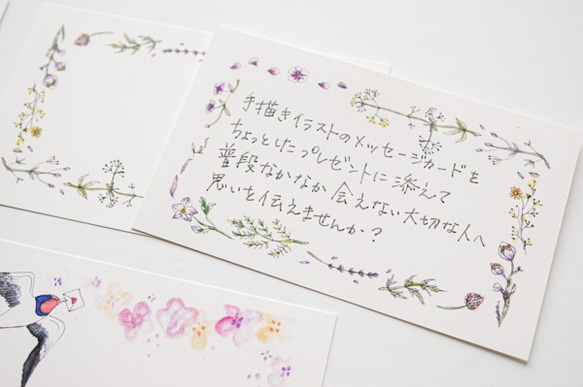 手描きイラストのメッセージカードを
ちょっとしたプレゼントに添えて
普段なかなか会えない大切な人へ
思いを伝えませんか?